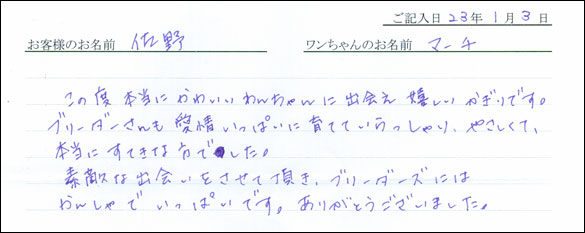 ご記入日 23年 1月 3日
お客様のお名前 佐野 ワンちゃんのお名前 マーチ
この度本当にかわいいわんちゃんに出会え嬉しいかぎりです。
ブリーダーさんも愛情いっぱいに育てていらっしゃり、やさしくて、
本当にすてきな方でした。
素敵な出会いをさせて頂き、ブリーダーズには
かんしゃでいっぱいです。ありがとうございました。